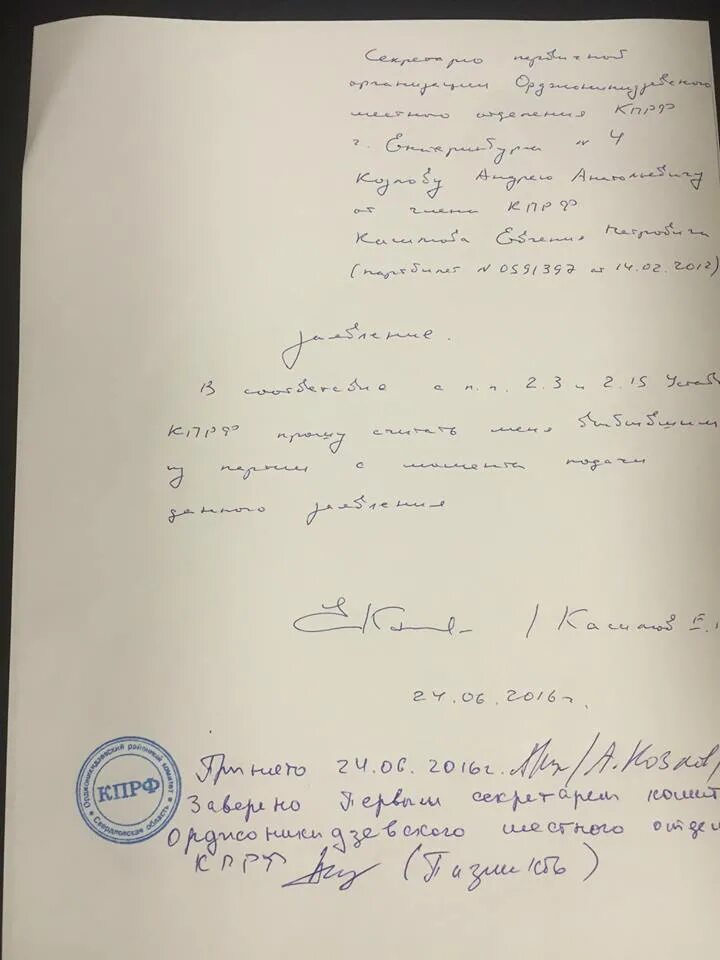 Секретарю первичной
организации Орджоникидзевского
местного отделения КПРФ
г. Екатеринбурга № 4
Козлову Андрею Анатольевичу
от члена КПРФ
Касимова Евгения Петровича
(партбилет № 0591397 от 14.02.2012)
Заявление.
В соответсвие с п.п. 2.3 и 2.15 Устав
КПРФ прошу считать меня выбывшим
из партии с момента подачи
данного заявления
/ Касимов Е.
24.06.2016г.
Принято 24.06.2016г. /А.Козлов/
Заверено Первым секретарем комит
Орджоникидзевского местного отдел
КПРФ
Орджоникидзевский районный комитет
КПРФ
Свердловская область